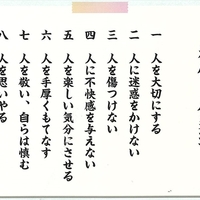 一 人を大切にする
二 人に迷惑をかけない
三 人を傷つけない
四 人に不快感を与えない
五 人を楽しい気分にさせる
六 人を手厚くもてなす
七 人を敬い、自らは慎む
八 人を思いやる